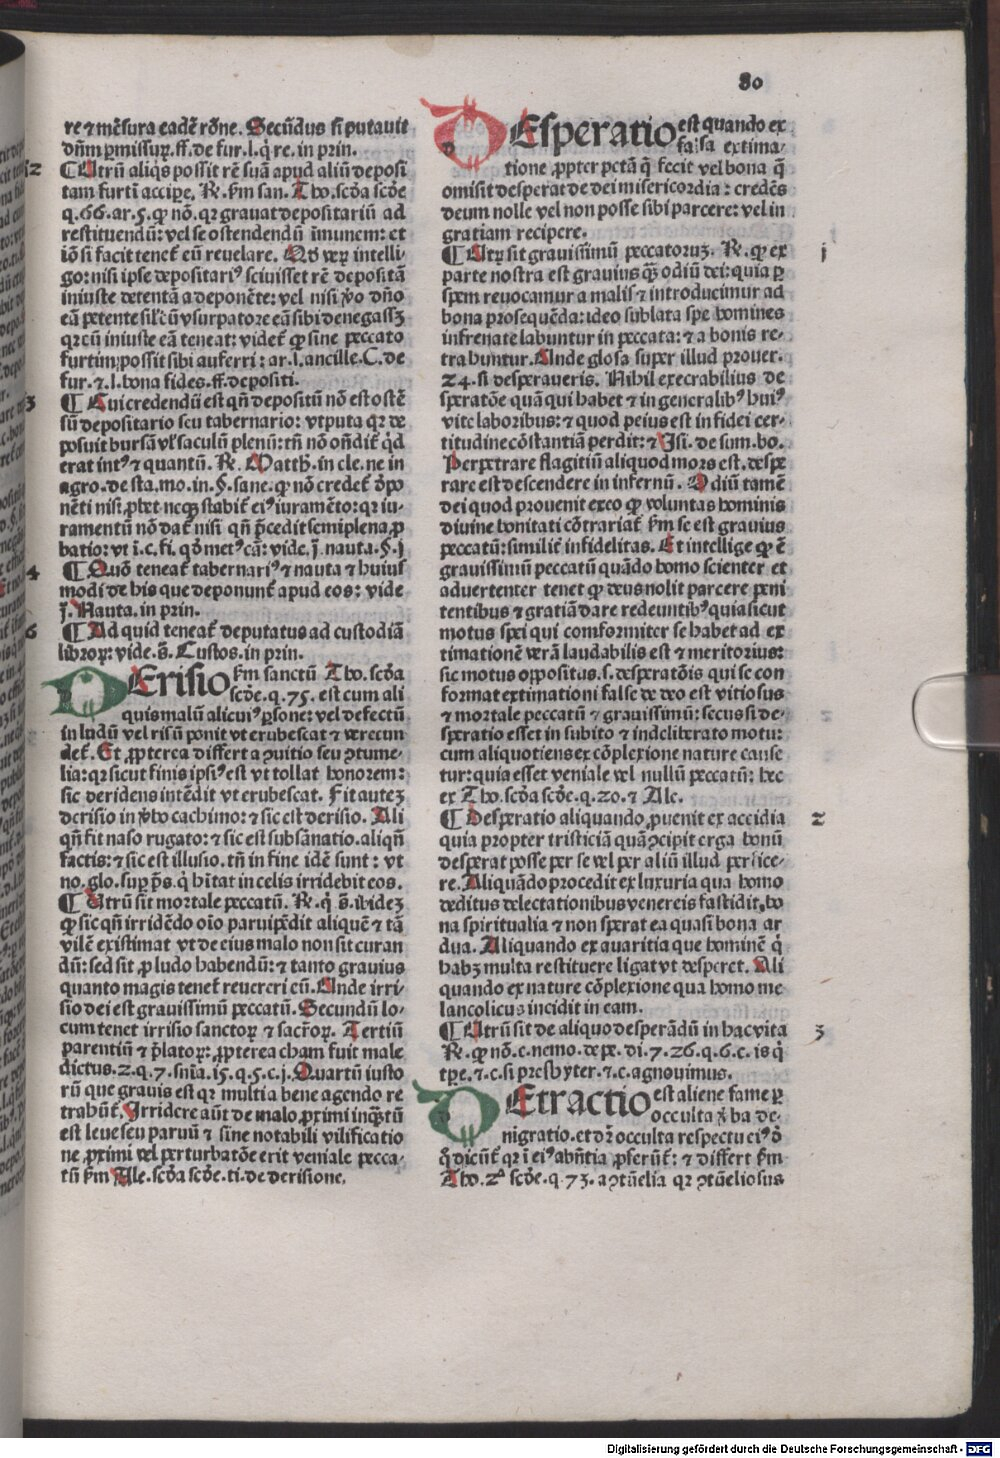 80
re ⁊ mẽsura eadẽ rõne. Secũdus si putauit
dñm ꝑmissuꝝ. ff. de fur. l. q̇ re. in prin.
2
¶ Utrũ aliq̇s possit rẽ suã apud aliũ deposi
tam furti accipe. R̃. fm san. Tho. scða scðe
q. 66. ar. 5. ꝙ nõ. qꝛ grauat depositariũ ad
restituendũ: vel se ostendendũ ĩmunem: et
iõ si facit tenet̃ eũ reuelare. Qð veꝝ intelli
go: nisi ipse depositariꝰ sciuisset rẽ depositã
iniuste detentã a deponẽte: vel nisi ꝟo dño
eã petente sil̃ cũ vsurpatore eã sibi denegassꝫ
qꝛ cũ iniuste eã teneat: videt̃ ꝙ sine peccato
furti: possit sibi auferri: ar. l. ancille. C. de
fur. ⁊. l. bona fides. ff. depositi.
3
¶ Cui credendũ est qñ depositũ nõ est ostẽ
sũ depositario seu tabernario: vt puta qꝛ de
posuit bursã vl̃ saculũ plenũ: tñ nõ oñdit̃ q̇d
erat intꝰ ⁊ quantũ. R̃. Matth. in cle. ne in
agro. de sta. mo. in. §. sane. ꝙ nõ credet̃ õpo
nẽti nisi ꝓbet necꝫ stabit̃ eiꝰ iuramẽto: qꝛ iu-
ramentũ nõ dat̃ nisi qñ p̃cedit semiplena ꝓ
batio: vt ĩ. c. fi. qð metꝰ cã: vide. j̃. nauta. §. j
4
¶ Quõ teneat̃ tabernariꝰ ⁊ nauta ⁊ huius
modi de his que deponunt̃ apud eos: vide
j̃. Nauta. in prin.
6
¶ Ad quid teneat̃ deputatus ad custodiã
libroꝝ: vide. s̃. Custos. in prin.
DErisio fm sanctũ Tho. scða
scðe. q. 75. est cum ali
quis malũ alicuiꝰ ꝑsone: vel defectũ
in ludũ vel risũ ponit vt erubescat ⁊ verecun
det̃. Et ꝓpterea differt a ꝯuitio seu ꝯtume-
lia: qꝛ sicut finis ipsiꝰ est vt tollat honorem:
sic deridens intẽdit vt erubescat. Fit auteꝫ
derisio in ꝟbo cachimo: ⁊ sic est derisio. Ali
qñ fit naso rugato: ⁊ sic est subsãnatio. aliqñ
factis: ⁊ sic est illusio. tñ in fine idẽ sunt: vt
no. glo. suꝑ p̃s. q̇ hĩtat in celis irridebit eos.
¶ Utrũ sit mortale peccatũ. R̃. q̇ s̃. ibideꝫ
ꝙ sic qñ irridẽdo oĩo paruipẽdit aliquẽ ⁊ tã
vilẽ existimat vt de eius malo non sit curan
dũ: sed sit ꝓ ludo habendũ: ⁊ tanto grauius
quanto magis tenet̃ reuereri eũ. Unde irri-
sio dei est grauissimũ peccatũ. Secundũ lo-
cum tenet irrisio sanctoꝝ ⁊ sacr̃oꝝ. Tertiũ
parentiũ ⁊ p̃latoꝝ: ꝓpterea cham fuit male
dictus. 2. q. 7. sñia. 15. q. 5. c. j. Quartũ iusto
rũ que grauis est qꝛ multi a bene agendo re
trahũt̃. Irridere aũt de malo ꝓximi inqñtũ
est leue seu paruũ ⁊ sine notabili vilificatio
ne ꝓximi vel perturbatõe erit veniale pecca-
tũ fm Ale. scða scðe. ti. de derisione.
DEsperatio est quando ex
falsa extima-
tione ꝓpter pctã q̃ fecit vel bona q̃
omisit desperat de dei misericordia: credẽs
deum nolle vel non posse sibi parcere: vel in
gratiam recipere.
j
¶ Utꝝ sit grauissimũ peccatoruꝫ. R̃. ꝙ ex
parte nostra est grauius qꝫ odiũ dei: quia ꝑ
spem reuocamur a malis ⁊ introducimur ad
bona prosequẽda: ideo sublata spe homines
infrenate labuntur in peccata: ⁊ a bonis re-
trahuntur. Unde glosa super illud prouer.
24. si desperaueris. Nihil execrabilius de
speratõe quã qui habet ⁊ in generalibꝰ huiꝰ
vite laboribus: ⁊ quod peius est in fidei cer-
titudine cõstantiã perdit: ⁊ Isi. de sum. bo.
Perpetrare flagitiũ aliquod mors est. despe
rare est descendere in infernũ. Odiũ tamẽ
dei quod prouenit ex eo ꝙ voluntas hominis
diuine bonitati cõtrariat̃ fm se est grauius
peccatũ: similit̃ infidelitas. Et intellige ꝙ ẽ
grauissimũ peccatũ quãdo homo scienter et
aduertenter tenet ꝙ deus nolit parcere peni
tentibus ⁊ gratiã dare redeuntibꝰ quia sicut
motus spei qui comformiter se habet ad ex
timationẽ verã laudabilis est ⁊ meritorius:
sic motus oppositus. s. desperatõis qui se con
format extimationi false de deo est vitiosus
⁊ mortale peccatũ ⁊ grauissimũ: secus si de-
speratio esset in subito ⁊ indeliberato motu:
cum aliquotiens ex cõplexione nature cause
tur: quia esset veniale vel nullũ peccatũ: hec
ex Tho. scða scðe. q. 20. ⁊ Ale.
2
¶ Desperatio aliquando ꝓuenit ex accidia
quia propter tristiciã quã ꝯcipit erga bonũ
desperat posse per se vel per aliũ illud perfice-
re. Aliquãdo procedit ex luxuria qua homo
deditus delectationibus venereis fastidit bo
na spiritualia ⁊ non sperat ea quasi bona ar
dua. Aliquando ex auaritia que hominẽ q̇
habꝫ multa restituere ligat vt desperet. Ali
quando ex nature cõplexione qua homo me
lancolicus incidit in eam.
3
¶ Utrũ sit de aliquo desperãdũ in hac vita
R̃. ꝙ nõ. c. nemo. de pe. di. 7. 26. q. 6. c. is q̇
tꝑe. ⁊. c. si presbyter. ⁊. c. agnouimus.
DEtractio est aliene fame ꝑ
occulta ꝟba de-
nigratio. et dꝛ occulta respectu eiꝰ õ
q̊ dicũt̃ qꝛ ĩ eiꝰ abñtia ꝓferũt̃: ⁊ differt fm
Tho. 2ª scðe. q. 73. a ꝯtũelia qꝛ ꝯtũeliosus
Digitalisierung gefördert durch die Deutsche Forschungsgemeinschaft - DFG